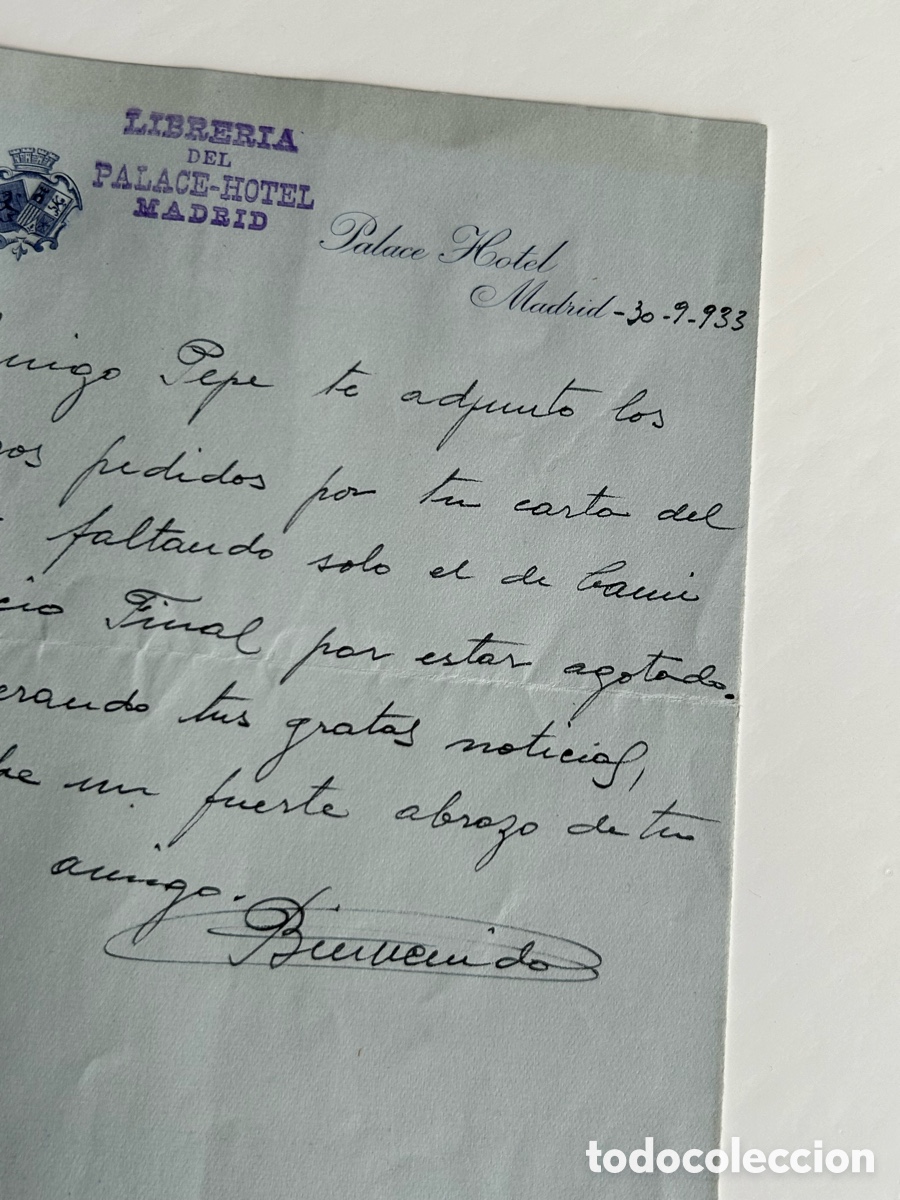 LIBRERIA
DEL
PALACE-HOTEL
MADRID
Palace Hotel
Madrid - 30-9-933
migo Pepe te adjunto los
os pedidos por tu carta del
faltando solo el de
cio Final por estar agotado.
erando tus gratas noticias,
be un fuerte abrazo de tu
amigo.
Bienvenido
todocoleccion